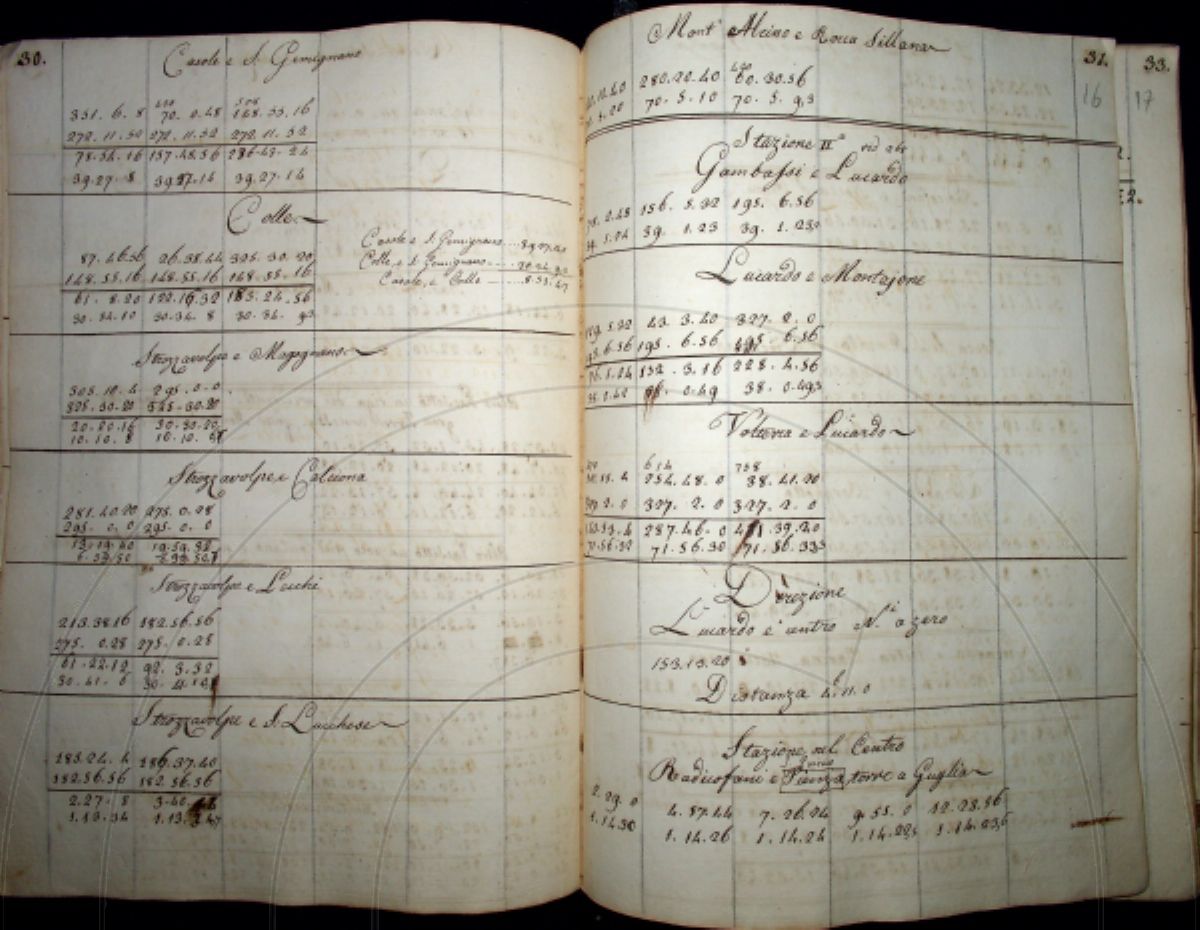 30.
Casole e S. Gemignano
351. 6. 8 70. 0.48 168.55.16
272.11.52 272.11.52 272.11.52
78.54.16 157.48.56 236.43.24
39.27.8 39.27.14 39.27.14
Colle
87.46.56 26.38.44 325.30.20
148.55.16 148.55.16 148.55.16
61.8.20 122.16.32 183.24.56
30.34.10 30.34.8 30.34.9
Casole e S. Gemignano
Colle, e S. Gemignano
Casole, e Colle
Strozzavolpe e Magognano
305.10.4 295.0.0
325.30.20 325.30.20
20.20.16 30.30.20
10.10.8 10.10.
Strozzavolpe e Calciona
281.40.20 275.0.28
295.0.0 295.0.0
13.19.40 19.59.32
Strozzavolpe e Lecchi
213.38.16 182.56.56
275.0.28 275.0.28
61.22.12 92.3.32
30.41.6
Strozzavolpe e S. Lucchese
185.24.4 186.37.40
182.56.56 182.56.56
2.27.8 3.40.
1.13.34 1.13.
31.
16
33.
17
Mont' Alcino e Rocca Sillana
280.20.40 60.30.56
70.5.10 70.5.93
Stazione II.a
Gambassi e Lucardo
78.2.48 156.5.32 195.6.56
39.1.24 39.1.23 39.1.23
Lucardo e Montajone
43.3.40 327.2.0
195.6.56 195.6.56 195.6.56
76.1.04 152.3.16 228.4.56
0.49 38.0.493
Volterra e Lucardo
614 758
254.48.0 38.41.20
327.2.0 327.2.0 327.2.0
287.46.0 431.39.20
71.56.30 71.56.333
Direzione
Lucardo e centro N. a zero
153.13.20
Distanza 4.11.0
Stazione nel Centro
Radicofani e Pienza torre a Guglia
2.29.0 4.57.44 7.26.24 9.55.0 12.23.56
1.14.30 1.14.26 1.14.24 1.14.225 1.14.235